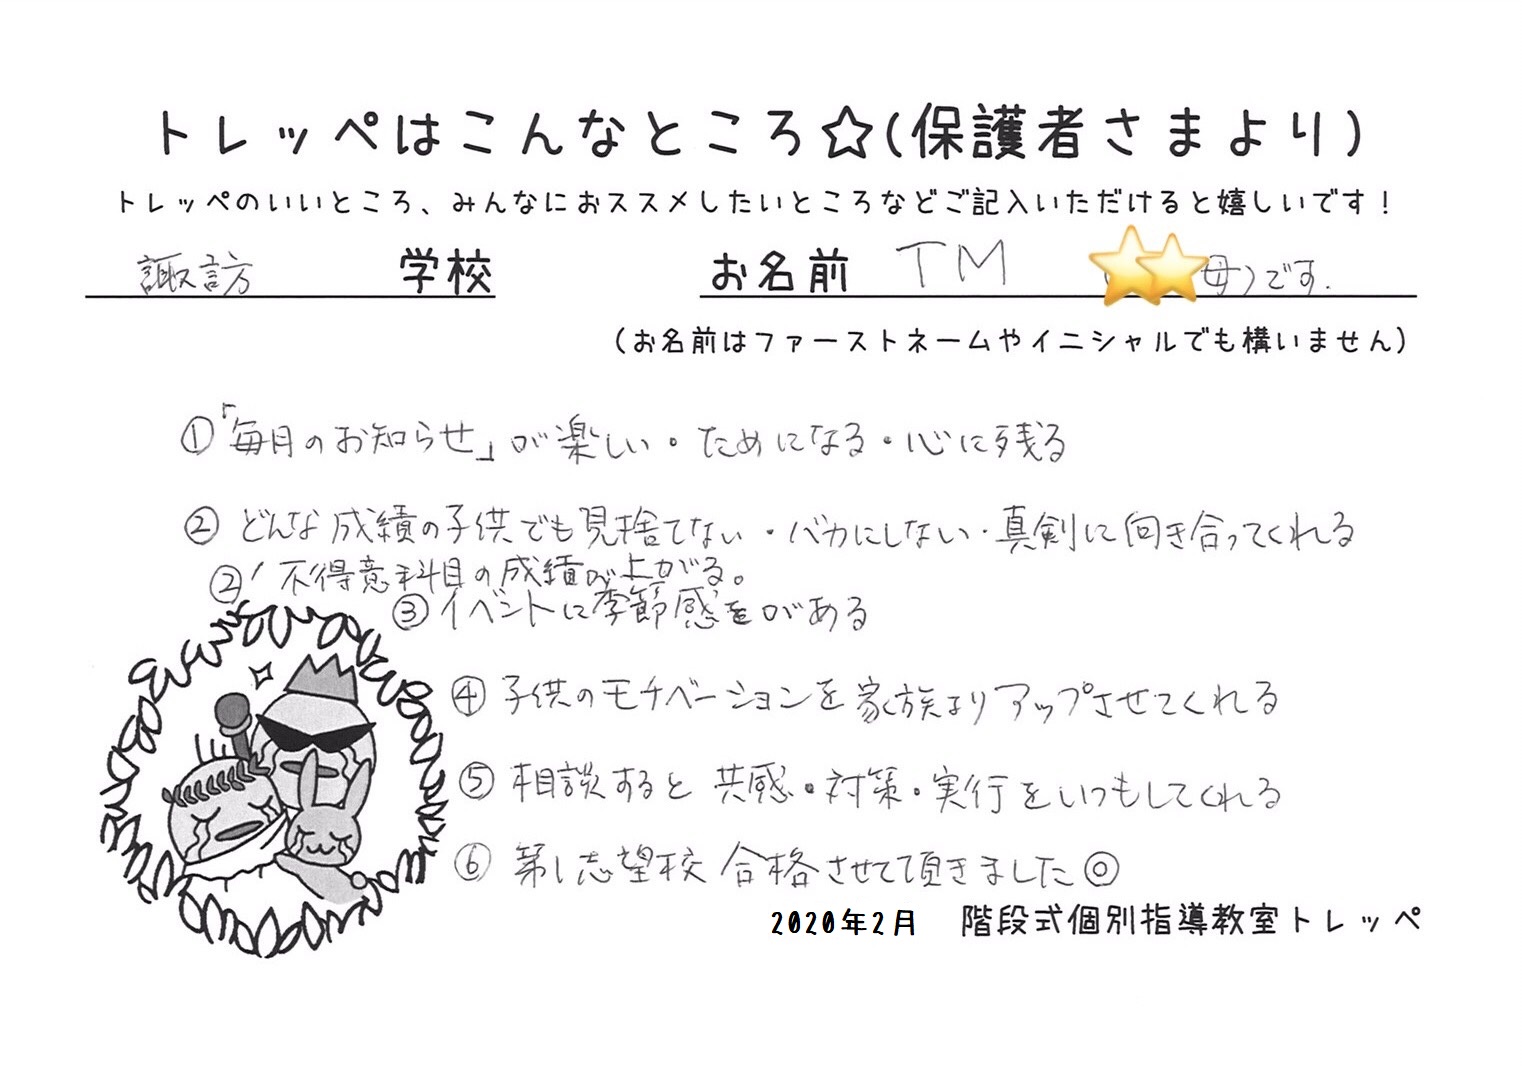 トレッペはこんなところ☆(保護者さまより)
トレッペのいいところ、みんなにおススメしたいところなどご記入いただけると嬉しいです！
諏訪 学校 お名前 TM 母)です.
(お名前はファーストネームやイニシャルでも構いません)
①「毎月のお知らせ」が楽しい・ためになる・心に残る
② どんな成績の子供でも見捨てない・バカにしない・真剣に向き合ってくれる
②' 不得意科目の成績が上がる。
③ イベントに季節感をがある
④ 子供のモチベーションを家族よりアップさせてくれる
⑤ 相談すると 共感・対策・実行をいつもしてくれる
⑥ 第1志望校 合格させて頂きました◎
2020年2月 階段式個別指導教室トレッペ